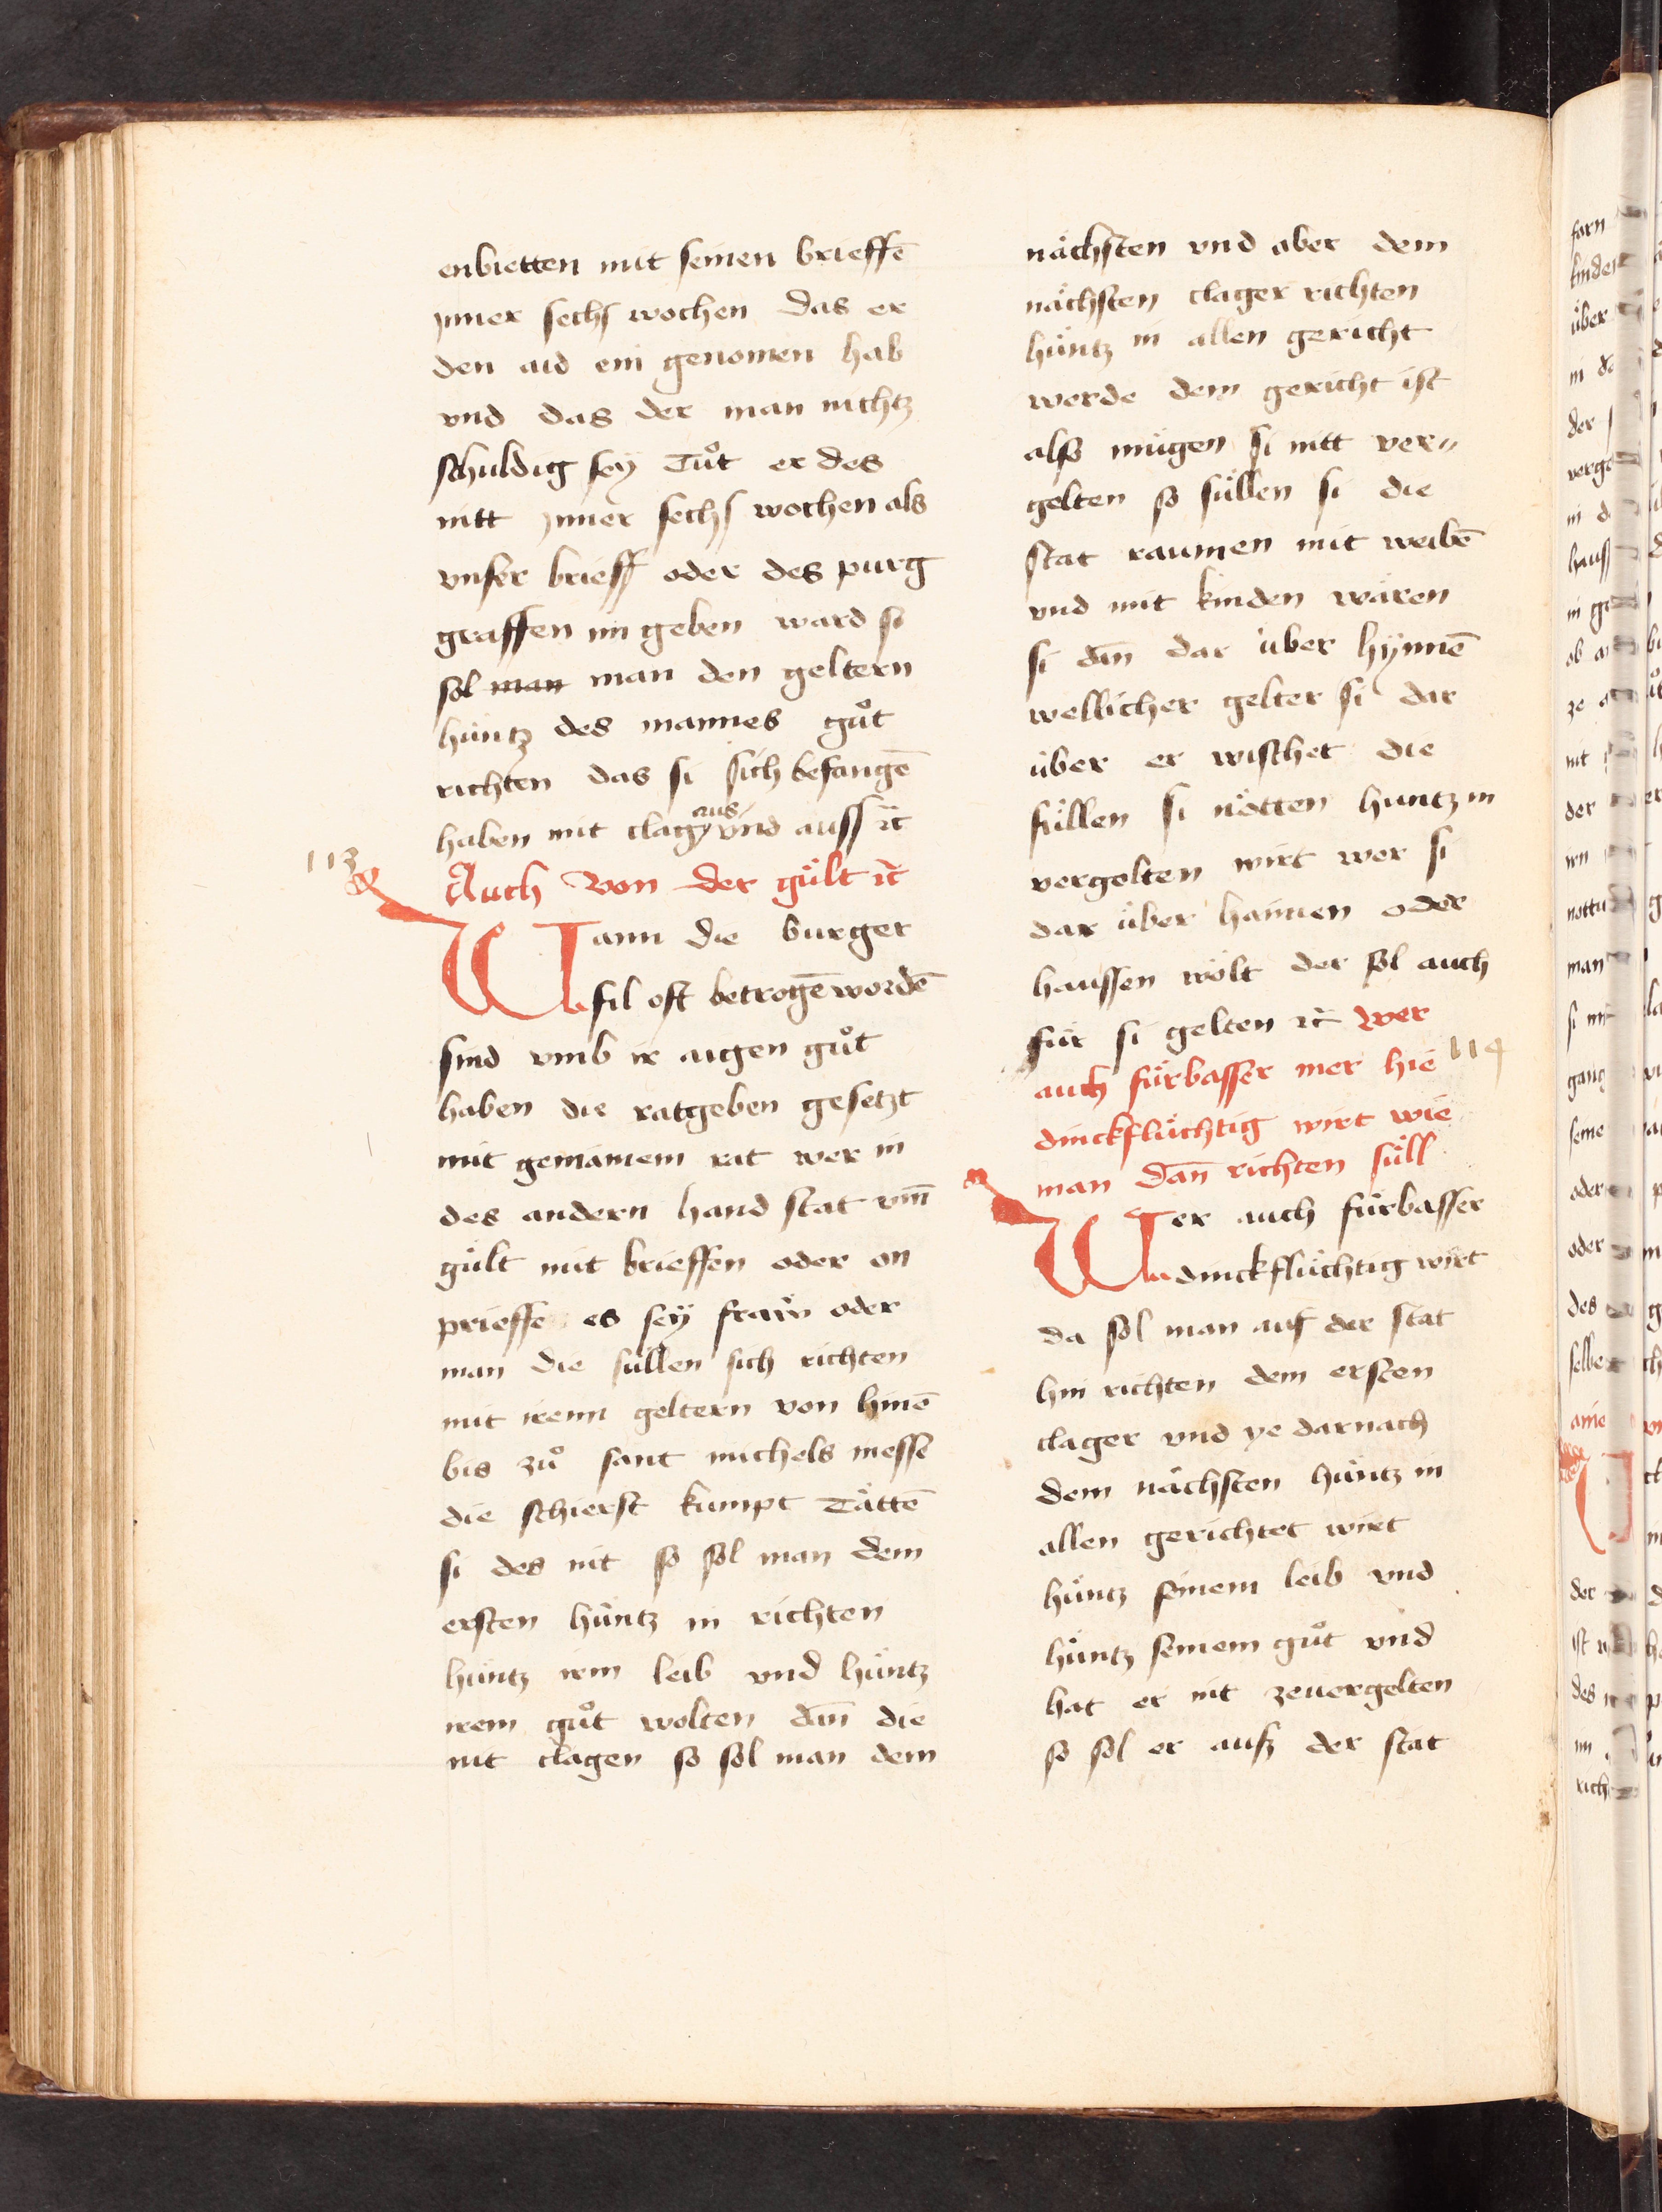 enbietten mit seinen brieffē
jnner sechs wochen das er
den aid ein genomen hab
vnd das der man nichtz
schuldig sey Tuͦt er des
nitt jnner sechs wochen als
vnser brieff oder des purg
graffen im geben ward so
sol man man den geltern
huͤntz des mannes guͦt
richten das si sich befangē
haben mit clag aus vnd auss ꝛc̄
113
Auch Von der guͤlt ꝛc̄
Wann die burger
fil oft betrogē wordē
sind vmb ir aigen guͦt
haben die ratgeben gesetzt
mit gemainem rat wer in
des andern hand stat vm̄
guͤlt mit brieffen oder on
prieffe es sey fraẅ oder
man die suͤllen sich richten
mit irenn geltern von hinē
bis zuͦ sant michels messe
die schierst kumpt Taͤttē
si des nit so sol man dem
ersten huͤntz in richten
huͤntz irm leib vnd huͤntz
irem guͦt wolten dan̄ die
nit clagen so sol man dem
naͤchsten vnd aber dem
naͤchsten clager richten
huͤntz in allen gericht
werde dem gericht ist
also muͤgen si nitt ver〃
gelten so suͤllen si die
stat raumen mit weibē
vnd mit kinden waͤren
si dan̄ dar uͤber hynnē
wellicher gelter si dar
uͤber er wischet die
suͤllen si noͤtten huntz in
vergolten wirt wer si
dar uͤber haimen oder
haussen woͤlt der sol auch
fuͤr si gelten ꝛc̄ wer
114
auch fuͤrbasser mer hie
dinckfluͤchtig wirt wie
man dan̄ richten suͤll
Wer auch fuͤrbasser
dinckfluͤchtig wirt
da sol man auf der stat
hin richten dem ersten
clager vnd ye darnach
dem naͤchsten huͤntz in
allen gerichtet wirt
huͤntz seinem leib vnd
huͤntz seinem guͦt vnd
hat er nit zeuergelten
so sol er ausz der stat